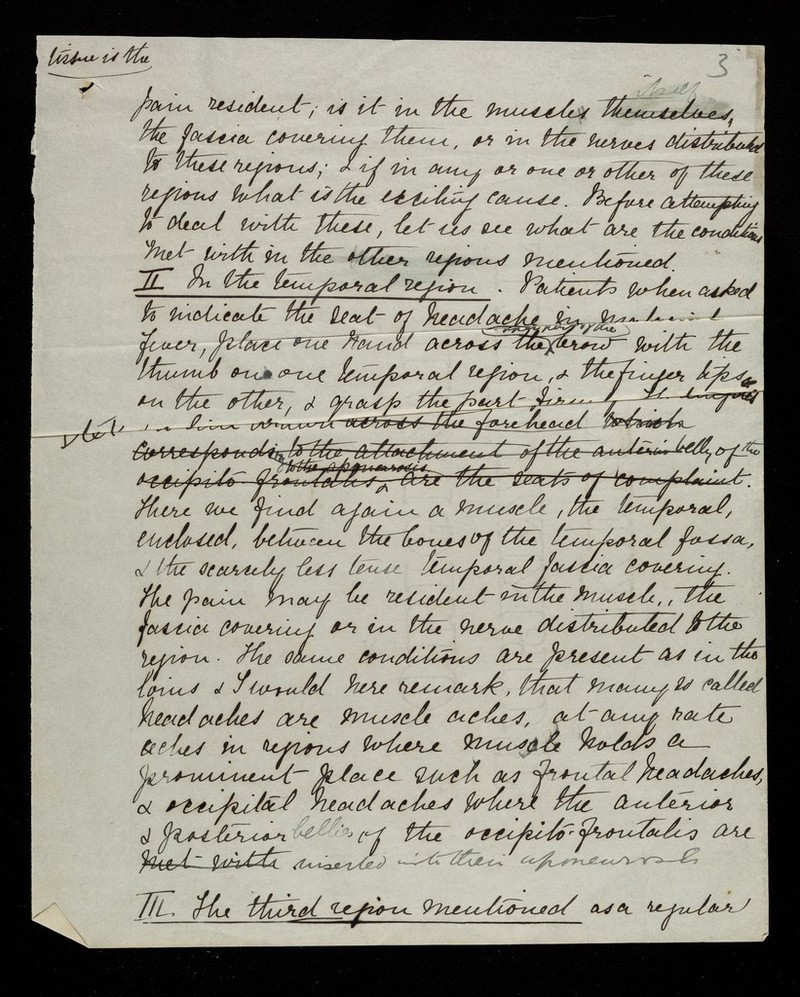 3
tissue is the
itself
pain resident; is it in the muscles themselves,
the fascia covering them, or in the nerves distributed
to these regions; & if in any or one or other of these
regions what is the exciting cause. Before attempting
to deal with these, let us see what are the conditions
met with in the other regions mentioned.
II In the temporal region. Patients when asked
to indicate the seat of headache in
fever, place one hand across the brow with the
thumb on one temporal region, & the finger tips
on the other, & grasp the part firmly.
across the forehead which
corresponding to the attachment of the anterior belly of the
to the aponeurosis
occipito frontalis, are the seats of complaint.
Here we find again a muscle, the temporal,
enclosed, between the bones of the temporal fossa,
& the scarcely less tense temporal fascia covering.
The pain may be resident in the muscle, the
fascia covering or in the nerve distributed to the
region. The same conditions are present as in the
loins & I would here remark, that many so called
headaches are muscle aches, at any rate
aches in regions where muscle holds a
prominent place such as frontal headaches,
& occipital headaches where the anterior
& posterior bellies of the occipito-frontalis are
met with inserted into their aponeurosis
III. The third region mentioned as a regular